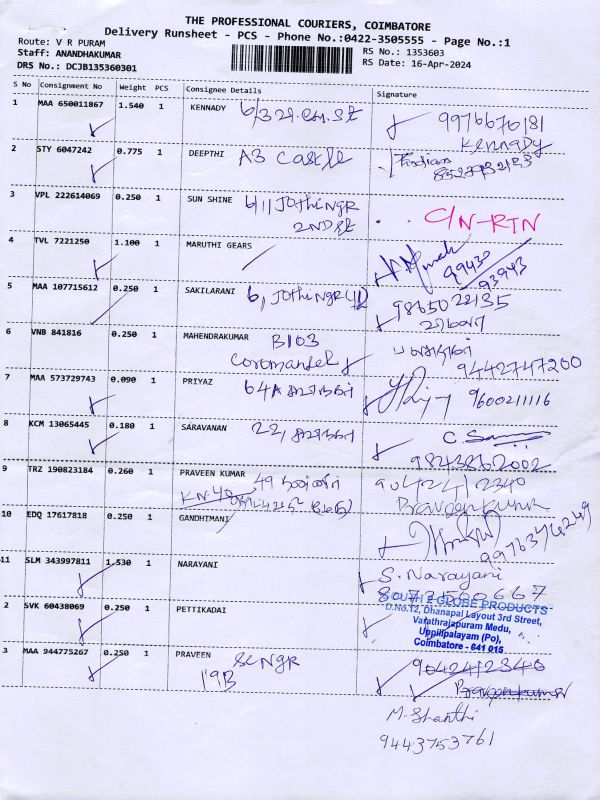 THE PROFESSIONAL COURIERS, COIMBATORE
Delivery Runsheet - PCS - Phone No.:0422-3505555 - Page No.:1
Route: V R PURAM
RS No.: 1353603
Staff: ANANDHAKUMAR
RS Date: 16-Apr-2024
DRS No.: DCJB135360301
S No Consignment No Weight PCS Consignee Details Signature
1 MAA 650011867 1.540 1 KENNADY
9976670181
Kennady
2 STY 6047242 0.775 1 DEEPTHI A3 Castle
3 VPL 222614069 0.250 1 SUN SHINE 6/11 JothiNGR
2ND St
C/N-RTN
4 TVL 7221250 1.100 1 MARUTHI GEARS
99430
93943
5 MAA 107715612 0.250 1 SAKILARANI 6, JothiNGR
98650 22135
6 VNB 841816 0.250 1 MAHENDRAKUMAR B103
Coromandel
9442747200
7 MAA 573729743 0.090 1 PRIYAZ 64A
9600211116
8 KCM 13065445 0.180 1 SARAVANAN 22,
9843862002
9 TRZ 190823184 0.260 1 PRAVEEN KUMAR 49
9042412340
Praveenkumar
10 EDQ 17617818 0.250 1 GANDHIMANI
9976374249
11 SLM 343997811 1.530 1 NARAYANI
S. Narayani
8073500667
2 SVK 60438069 0.250 1 PETTIKADAI
SOUTH E GLOBE PRODUCTS
D.No.12, Dhanapal Layout 3rd Street,
Varathrajapuram Medu,
Uppilipalayam (Po),
Coimbatore - 641 015
3 MAA 944775267 0.250 1 PRAVEEN SC NGR
19B
9042412340
Praveenkumar
M. Shanthi
9443753761